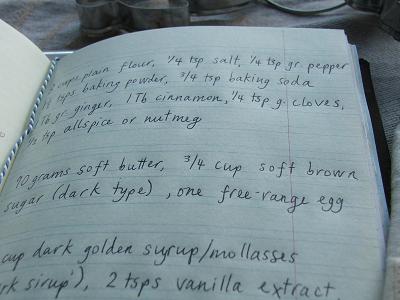 2 cups plain flour, 1/4 tsp salt, 1/4 tsp gr. pepper
tsps baking powder, 3/4 tsp baking soda
Tb gr. ginger, 1 Tb cinnamon, 1/4 tsp g. cloves,
1/2 tsp allspice or nutmeg
90 grams soft butter, 3/4 cup soft brown
sugar (dark type), one free-range egg
cup dark golden syrup/mollasses
sirup'), 2 tsps vanilla extract